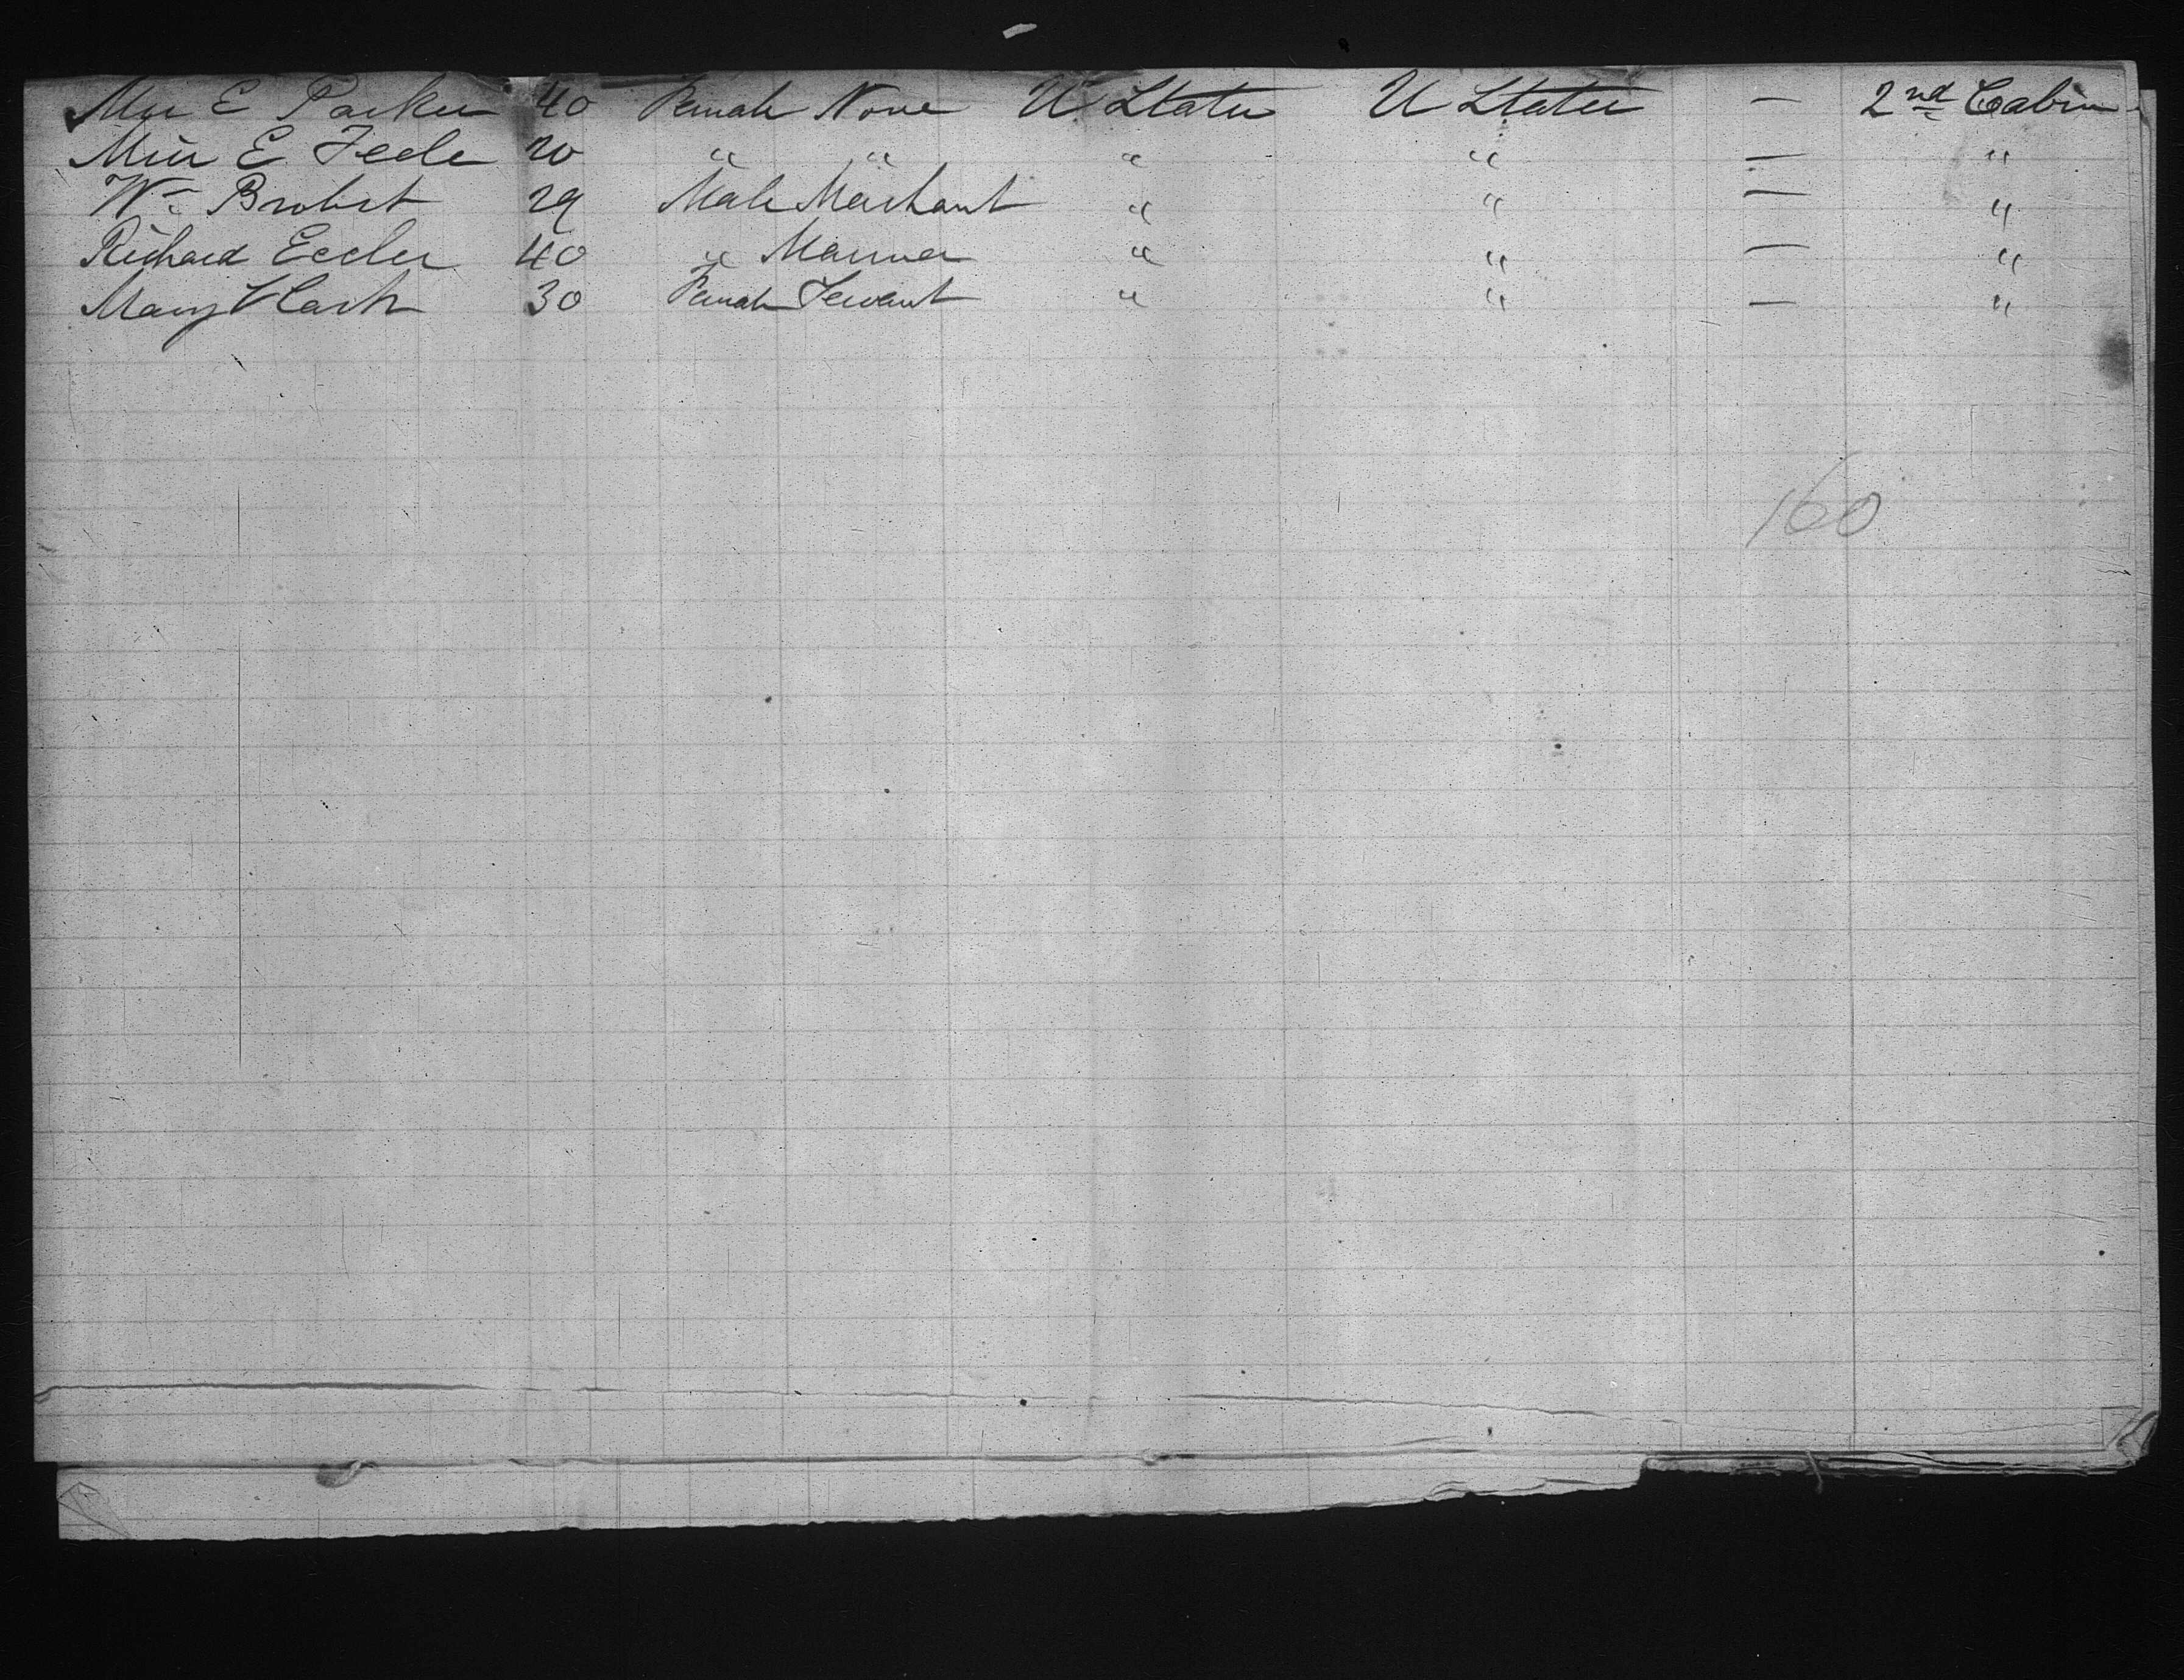 Mrs E Parker 40 Female None U States U States — 2nd Cabin
Miss E Teele 20 " " " " — "
Wm Probst 29 Male Merchant " " — "
Richard Eccles 40 " Mariner " " — "
Mary Clark 30 Female Servant " " — "
160